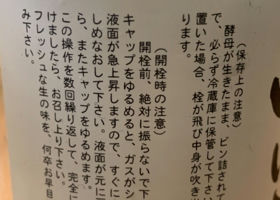 (保存上の注意)
酵母が生きたまま、ビン詰されて
で、必らず冷蔵庫に保管して下さい
置いた場合、栓が飛び中身が吹き
ります。
(開栓時の注意)
開栓前、絶対に振らないで下
キャップをゆるめると、ガスがシ
液面が急上昇しますので、すぐに
しめなおして下さい。液面が元に
ら、またキャップをゆるめます。
この操作を数回繰り返して、完全に
けましたら、お召し上り下さい。
フレッシュな生の味を、何卒お早目
み下さい。